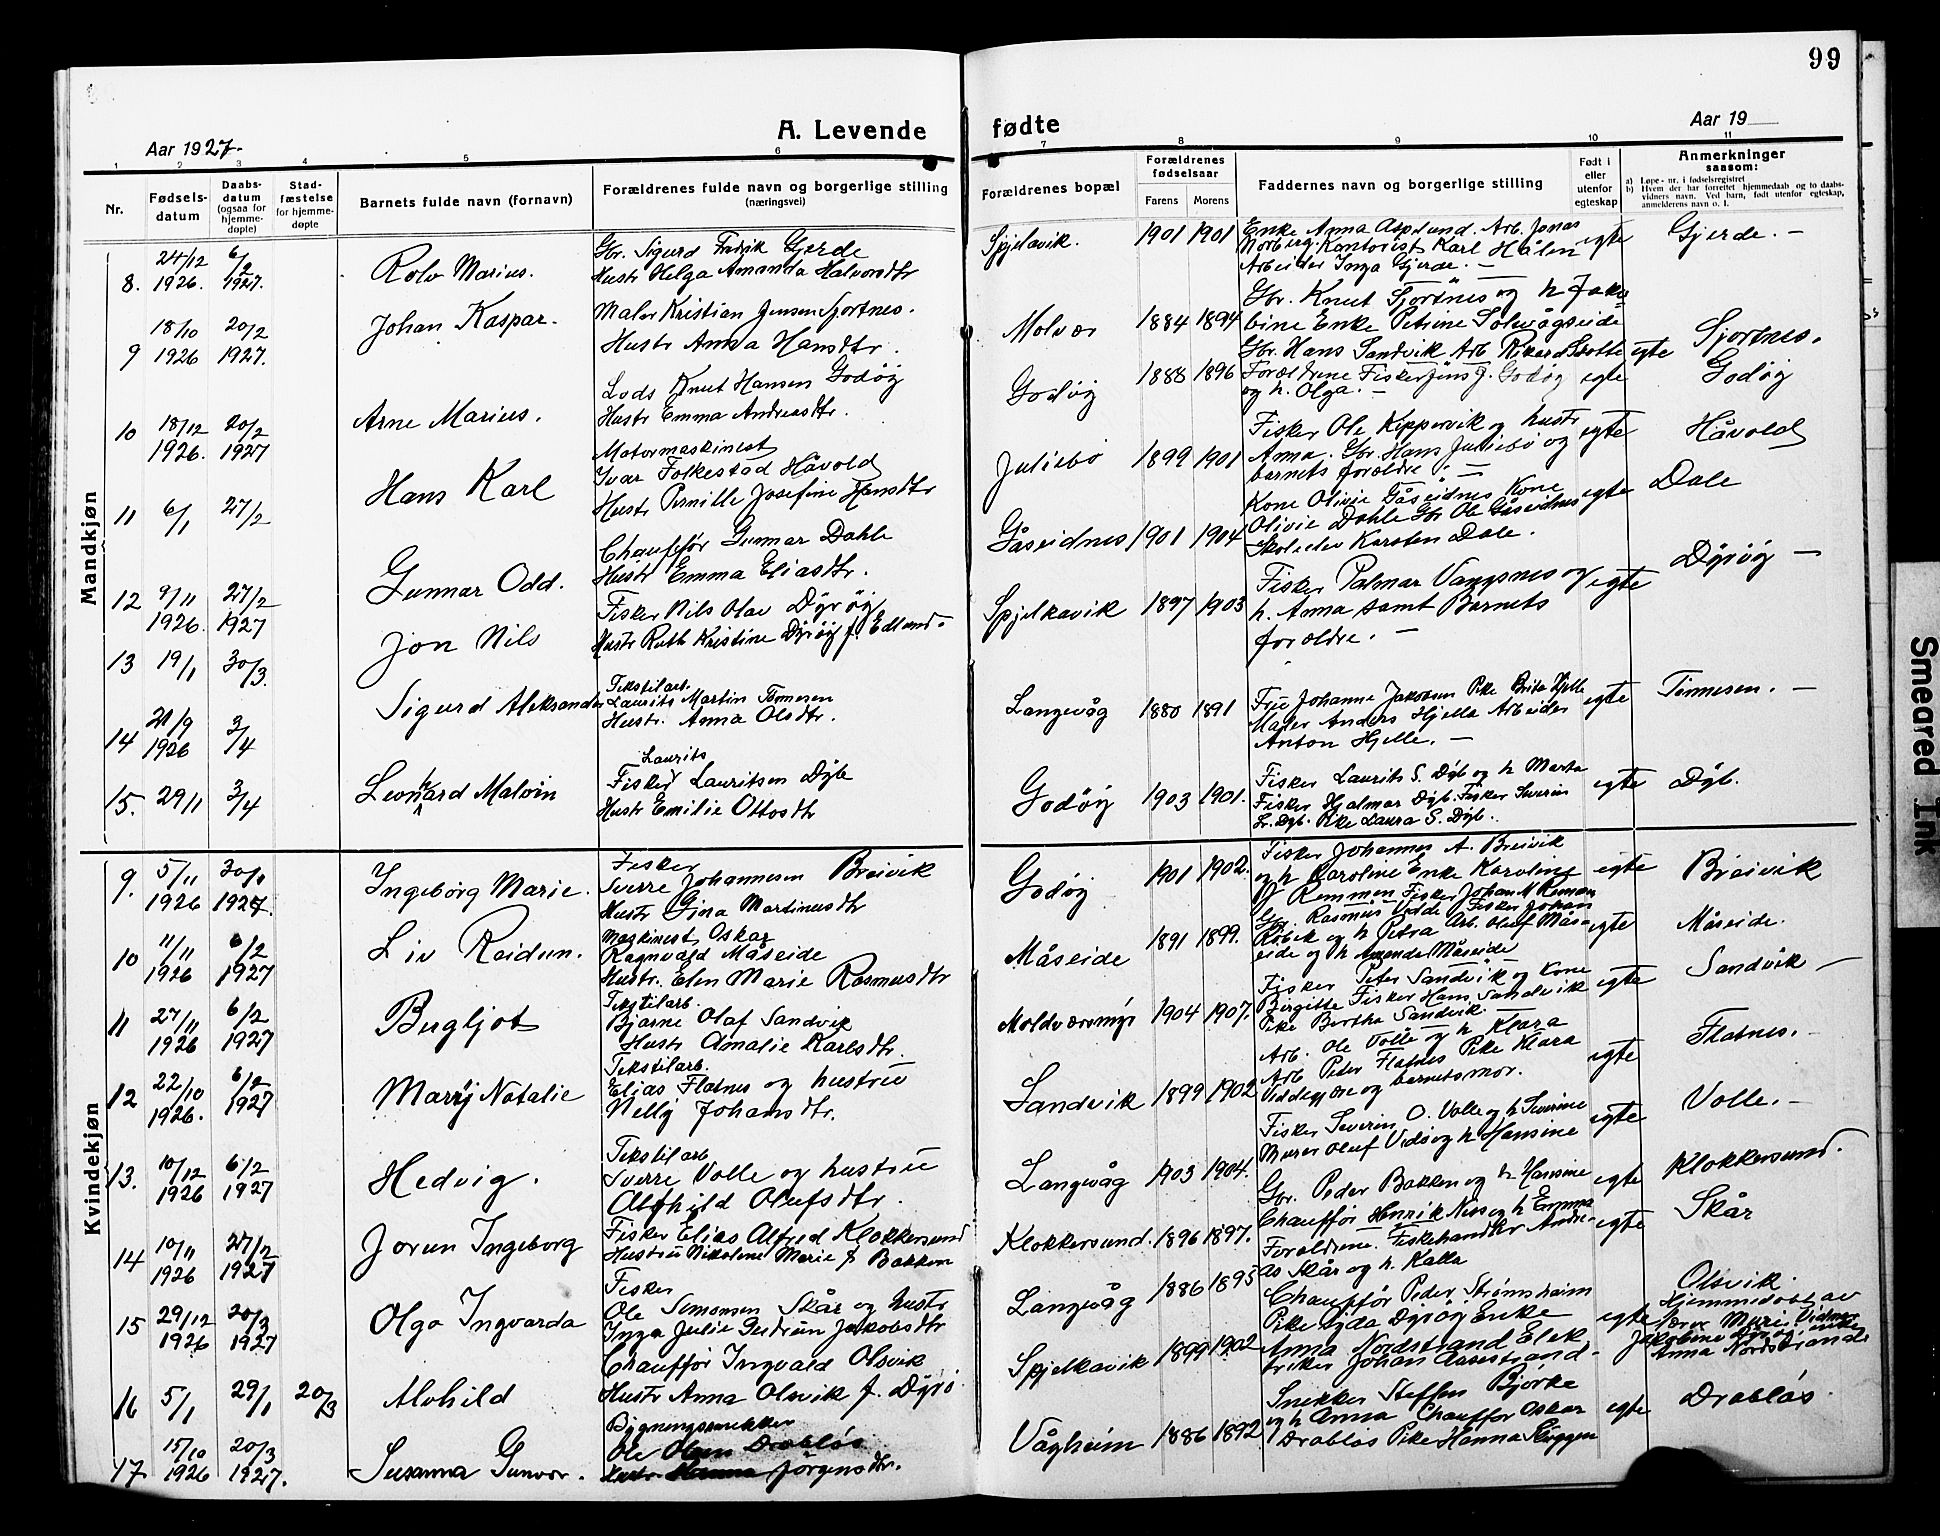 99
A. Levende fødte
Aar 1927.
Aar 19
1 2 3 4 5 6 7 8 9 10 11
Nr.
Fødsels-
datum
Daabs-
datum
(ogsaa for
hjemme-
døpte)
Stad-
fæstelse
for hjemme-
døpte
Barnets fulde navn (fornavn)
Forældrenes fulde navn og borgerlige stilling
(næringsvei)
Forældrenes bopæl
Forældrenes
fødselsaar
Farens Morens
Faddernes navn og borgerlige stilling
Født i
eller
utenfor
egteskap
Anmerkninger
saasom:
a) Løpe-nr. i fødselsregistret
b) Hvem der har forrettet hjemmedaab og to daabs-
vidners navn. Ved barn, født utenfor egteskap,
anmelderens navn o. l.
Mandkjøn
8. 24/12 1926. 6/2 1927.
Rolv Marius.
Gbr. Sigurd Fredrik Gjerde
Hustr Helga Amanda Halvorsdtr
Spjelkavik. 1901 1901
Enke Anna Asplund. Arb. Jonas
Norberg. Kontorist Karl Hålen
Arbeider Inga Gjerde. —
egte
Gjerde. —
9 18/10 1926 20/2 1927.
Johan Kaspar.
Maler Kristian Jensen Sjortnes.
Hustr Anna Hansdtr.
Molvær 1884 1894
Gbr. Knut Sjortnes og h Jako
bine Enke Petrine Solevågseide
Gbr. Hans Sandvik Arb Rikard Slotte
egte
Sjortnes.
10 18/12 1926. 20/2 1927
Arne Marius.
Lods Knut Hansen Godøy
Hustr Emma Andreasdtr.
Godøy 1888 1896
Forældrene Fisker Jens J. Godøy
og h. Olga. —
egte
Godøy
11 6/1 27/2
Hans Karl
Motormaskinest
Ivar Folkestad Håvold
Hustr Pernille Josefine Hansdtr
Juliebø 1899 1901
Fisker Ole Kippervik og hustr
Anna. Gbr. Hans Juliebø og
barnets forældre. —
egte
Håvold
12 9/11 1926. 27/2 1927
Gunnar Odd.
Chauffør Gunnar Dahle
Hustr Emma Eliasdtr.
Gåseidnes 1901 1904
Kone Olivie Gåseidnes Kone
Olivie Dahle Gbr Ole Gåseidnes
Skoleelev Karsten Dale.
egte
Dale
13 19/1 30/3.
Jon Nils
Fisker Nils Olav Dyrøy
Hustr Ruth Kristine Dyrøy f. Edlund.
Spjelkavik 1897 1903
Fisker Palmar Vangsnes og
h. Anna samt Barnets
forældre. —
egte
Dyrøy —
14 21/9 1926 3/4
Sigurd Aleksander
Tekstilarb.
Laurits Martin Tennesen
Hustr. Anna Olsdtr.
Langevåg 1880 1891
Fru Johanne Jakobsen Pike Brita Hjelle
Maler Anders Hjelle Arbeider
Anton Hjelle. —
egte
Tennesen. —
15. 29/11 3/4
Leonhard Malvin
Laurits
Fisker Lauritsen Dyb
Hustr Emilie Ottosdtr
Godøy 1903 1901.
Fisker Laurits S. Dyb og h Marta
Fisker Hjalmar Dyb. Fisker Severin
Lr. Dyb. Pike Laura S. Dyb.
egte
Dyb.
Kvindekjøn
9. 5/11 1926 30/1 1927.
Ingeborg Marie.
Fisker
Sverre Johannesen Breivik
Hustr Gina Martinusdtr
Godøy 1901 1902.
Fisker Johannes A. Breivik
og h Caroline Enke Karoline
Remmen Fisker Johan M Remmen
egte
Breivik
10 11/11 1926 6/2 1927
Liv Reidun.
Maskinest Oskar
Ragnvald Måseide
Hustr. Elen Marie Rasmusdtr
Måseide 1891 1899.
Gbr. Rasmus Vedde Fisker Johan
Røbek og h Petra Arb. Oluf Mås-
eide og h Amanda Måseide
egte
Måseide.
11 27/11 1926 6/2 1927
Bergljot
Tekstilarb.
Bjarne Olaf Sandvik
Hustr Amalie Karlsdtr.
Moldværsmyr 1904 1907.
Fisker Peter Sandvik og Kone
Birgitte Fisker Hans Sandvik
Pike Bertha Sandvik.
egte
Sandvik —
12 22/10 1926. 6/2 1927
Mary Natalie
Tekstilarb.
Elias Flatnes og hustru
Nelly Johansdtr.
Sandvik 1899 1902
Arb. Ole Volle og h Klara
Arb Peder Flatnes Pike Klara
Veddegjære og barnets mor.
egte
Flatnes.
13. 10/12 1926 6/2 1927
Hedvig.
Tekstilarb
Sverre Volle og hustru
Alfhild Olufsdtr.
Langevåg 1903 1904.
Fisker Severin O. Volle og h Severine
Murer Oluf Vedø og h Hansine
egte
Volle. —
14 10/11 1926 27/2 1927
Jorun Ingeborg
Fisker Elias Alfred Klokkersund
Hustru Nikoline Marie f Bakken
Klokkersund. 1896 1897.
Gbr. Peder Bakken og h Hansine
Chauffør Henrik Ness og h Emma
egte
Klokkersund.
15 29/12 1926 20/3 1927
Olga Ingvarda
Fisker
Ole Simonsen Skår og hustr
Inga Julie Gudrun Jakobsdtr
Langevåg 1886 1895
Forældrene. Fiskehandler Andre-
as Skår og h. Kalla
egte
Skår
16 5/1 29/1 20/3
Alvhild
Chauffør Ingvald Olsvik
Hustr Anna Olsvik f. Dyrø
Spjelkavik 1899 1902
Chauffør Peder Strømsheim
Pike Gyda Dyrøy Enke
Anna Nordstrand Elek
triker Johan Aasestrand
egte
Olsvik.
Hjemmedøbt av
Marie Vidnes
Jakobine Dyrøy
Anna Nordstrand
17 15/10 1926 20/3 1927.
Susanna Gunvor.
Bygningssnekker
Ole Olsen Drabløs
Hustr Hanna Jørgensdtr.
Vågheim 1886 1892
Snekker Steffen Bjørke
og h Anna Chauffør Oskar
Drabløs Pike Hanna Skuggen
egte
Drabløs
Smeared Ink